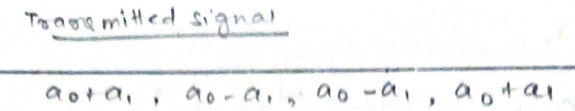 Transmitted signal
a0+a1, a0-a1, a0-a1, a0+a1